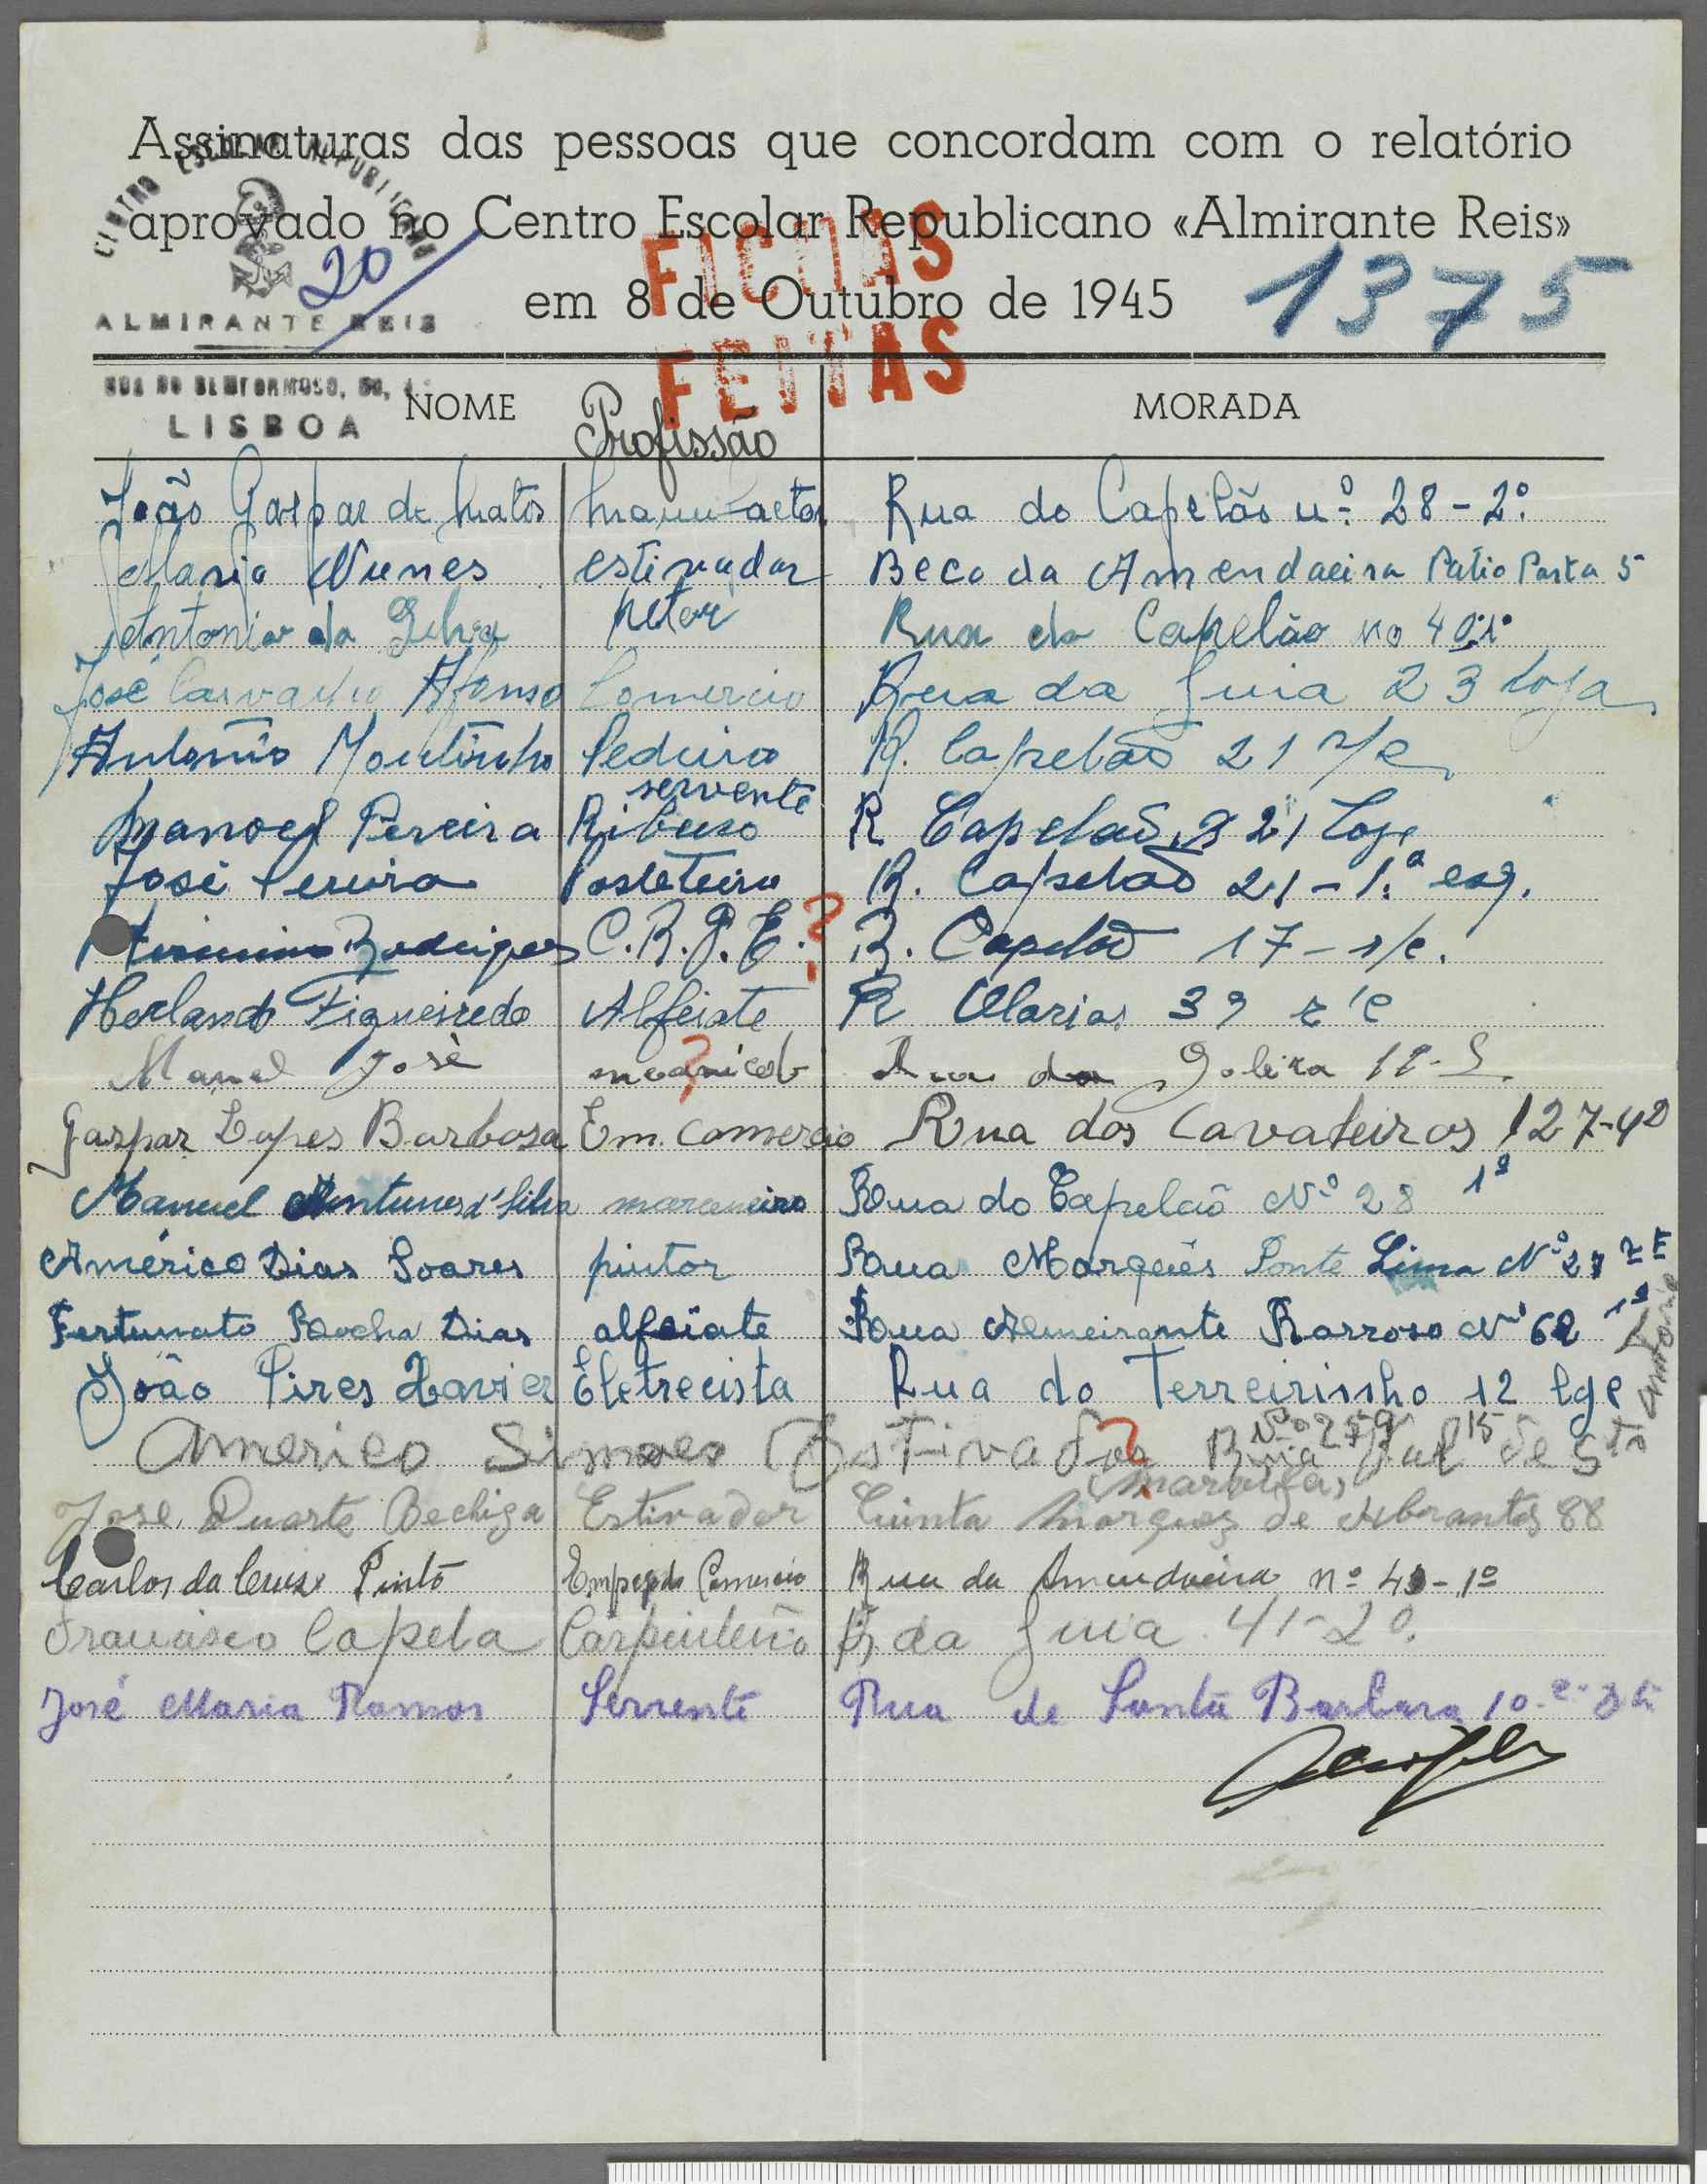 Assinaturas das pessoas que concordam com o relatório
aprovado no Centro Escolar Republicano «Almirante Reis»
em 8 de Outubro de 1945
CENTRO ESCOLAR REPUBLICANO
ALMIRANTE REIS
RUA DO BEMFORMOSO, 50, 1º
LISBOA
20
FICHAS
FEITAS
1375
NOME Profissão MORADA
João Gaspar de Matos manufactor Rua do Capelão nº 28-2º
Mario Nunes estivador Beco da Amendaeira Patio Porta 5
Antonio da Silva Rua do Capelão no 40 1º
José Carvalho Afonso Comercio Rua da Guia 23 loja
Antonio Moutinho Pedreiro R. Capelão 21 r/c
servente
Manoel Pereira R Capelão 21 Loja
José Pereira Pasteleiro R. Capelão 21-1.º esq.
Rodrigues C.R.G.E. ? R. Capelão 17-r/c.
Herlando Figueiredo Alfeiate R Olarias 39 r/c
Manel José ? Rua da 11-S
Gaspar Lopes Barbosa Em. Comercio Rua dos Cavaleiros 127-4º
Manuel Antunes d'Silva marceneiro Rua do Capelão Nº 28 1º
Américo Dias Soares pintor Rua Marquês Ponte Lima Nº 27
Fortunato Rocha Dias alfaiate Rua Almeirante Barroso Nº 62 1º
João Pires Xavier Eletrecista Rua do Terreirinho 12 lge
Americo Simoes Estivador ? Rua Gual de Stº
Antonio
José Duarte Bechiga Estivador Cuinta Marques de Abrantes 88
Marvilas
Carlos da Cruz Pinto Empegado Comercio Rua da Amendoeira nº 43-1º
Francisco Capela Carpinteiro R. da Guia 41-2º.
José Maria Ramos Servente Rua de Santa Barbara 10